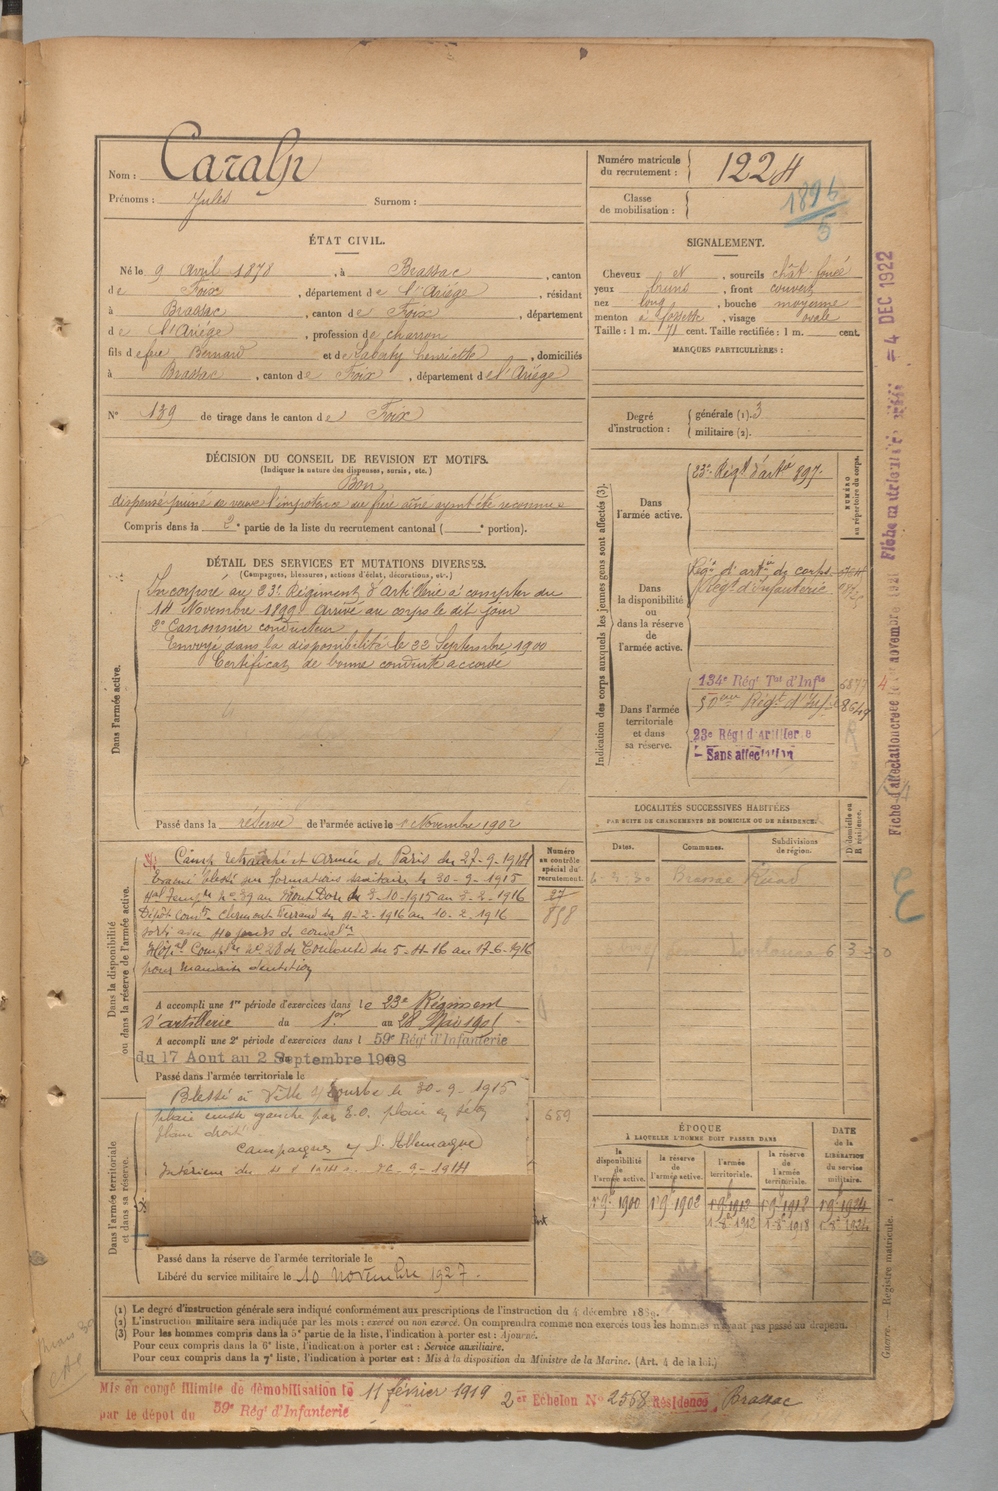 Nom : Caralp
Prénoms : Jules Surnom :
Numéro matricule du recrutement : 1224
Classe de mobilisation : 1896/5
ÉTAT CIVIL.
Né le 9 Avril 1878, à Brassac, canton
de Foix, département de l'Ariège, résidant
à Brassac, canton de Foix, département
de l'Ariège, profession de charron
fils de feu Bernard et de Labaty Henriette, domiciliés
à Brassac, canton de Foix, département de l'Ariège
N° 139 de tirage dans le canton de Foix
SIGNALEMENT.
Cheveux et, sourcils chât. foncé
yeux bruns, front couvert
nez long, bouche moyenne
menton à fossette, visage ovale
Taille : 1 m. 71 cent. Taille rectifiée : 1 m. cent.
MARQUES PARTICULIÈRES :
Degré d'instruction : générale (1). 3
militaire (2).
DÉCISION DU CONSEIL DE REVISION ET MOTIFS.
(Indiquer la nature des dispenses, sursis, etc.)
Bon
dispensé puîné de veuve l'impotence du frère aîné ayant été reconnue
Compris dans la 2e partie de la liste du recrutement cantonal ( e portion).
DÉTAIL DES SERVICES ET MUTATIONS DIVERSES.
(Campagnes, blessures, actions d'éclat, décorations, etc.)
Dans l'armée active.
Incorporé au 23e Régiment d'Artillerie à compter du
14 Novembre 1899 Arrivé au corps le dit jour
2e Canonnier conducteur
Envoyé dans la disponibilité le 22 Septembre 1900
Certificat de bonne conduite accordé
Passé dans la réserve de l'armée active le 1 Novembre 1902
Indication des corps auxquels les jeunes gens sont affectés (3).
NUMÉRO au répertoire du corps.
Dans l'armée active.
23e Régt d'artie 897
Dans la disponibilité ou dans la réserve de l'armée active.
Régt d'artie de corps
Régt d'Infanterie
Dans l'armée territoriale et dans sa réserve.
134e Régt Tal d'Infie 6877
Régt d'Infie 8649
23e Régt d'Artillerie
Sans affectation
LOCALITÉS SUCCESSIVES HABITÉES
PAR SUITE DE CHANGEMENTS DE DOMICILE OU DE RÉSIDENCE.
Dates. Communes. Subdivisions de région. D domicile ou R résidence.
Brassac
Toulouse
Dans la disponibilité ou dans la réserve de l'armée active.
Numéro au contrôle spécial du recrutement.
27
898
Camp retranché et Armée de Paris du 27-9-1914
Evacué blessé sur formations sanitaires le 30-9-1915
Hal Tempre No 39 au Mont Dore du 3-10-1915 au 3-2-1916
Dépôt Conv. Clermont Ferrand du 4-2-1916 au 10-2-1916
Hôpal Complre No 20 de Toulouse du 5-4-16 au 17-6-1916
pour mauvaise dentition
A accompli une 1re période d'exercices dans le 23e Régiment
d'artillerie du 1er au 28 Mai 1905
A accompli une 2e période d'exercices dans l 59e Régt d'Infanterie
du 17 Aout au 2 Septembre 1908
Passé dans l'armée territoriale le
Dans l'armée territoriale et dans sa réserve.
Blessé à Ville s/ Tourbe le 30-9-1915
plaie cuisse gauche par E.O. plaie
Campagnes c/ l'Allemagne
659
Passé dans la réserve de l'armée territoriale le
Libéré du service militaire le 10 novembre 1927.
ÉPOQUE
À LAQUELLE L'HOMME DOIT PASSER DANS
la disponibilité de l'armée active. la réserve de l'armée active. l'armée territoriale. la réserve de l'armée territoriale. DATE de la LIBÉRATION du service militaire.
1 9e 1900 1 9e 1902 1 9e 1912 1 9e 1918 1 9e 1924
1 8e 1912 1 8e 1918 1 8e 1924
(1) Le degré d'instruction générale sera indiqué conformément aux prescriptions de l'instruction du 4 décembre 1889.
(2) L'instruction militaire sera indiquée par les mots : exercé ou non exercé. On comprendra comme non exercés tous les hommes n'ayant pas passé au drapeau.
(3) Pour les hommes compris dans la 5e partie de la liste, l'indication à porter est : Ajourné.
Pour ceux compris dans la 6e liste, l'indication à porter est : Service auxiliaire.
Pour ceux compris dans la 7e liste, l'indication à porter est : Mis à la disposition du Ministre de la Marine. (Art. 4 de la loi.)
Mis en congé illimité de démobilisation le 11 février 1919 2er Echelon No 2568 Résidence Brassac
par le dépôt du 59e Régt d'Infanterie
Guerre. — Registre matricule.
4 DEC 1922